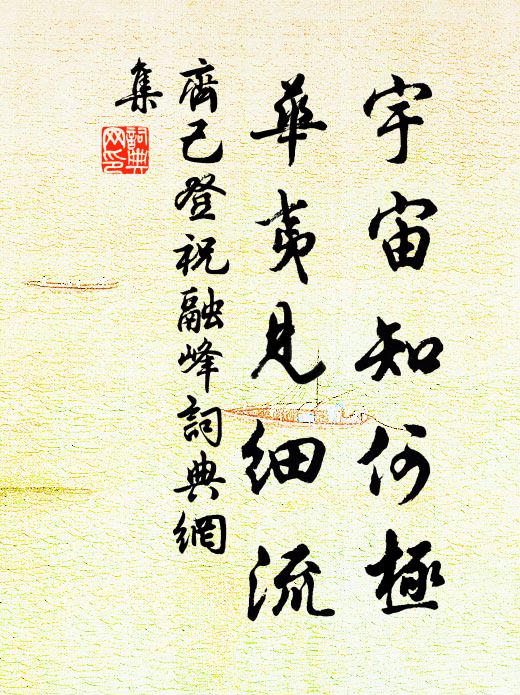 宇宙知何極
華夷見細流
齊己登祝融峰詞典網
集
詞典网印